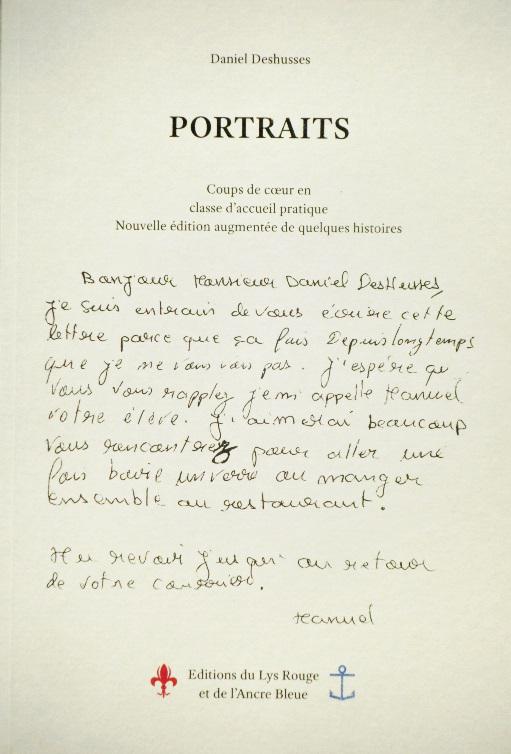 Daniel Deshusses
PORTRAITS
Coups de cœur en
classe d'accueil pratique
Nouvelle édition augmentée de quelques histoires
Bonjour Monsieur Daniel DesHusses,
je suis entrain de vous écrire cette
lettre parce que sa fais Depuis longtemps
que je ne vous vois pas. J'espére que
vous vous rapplez je mi appelle Manuel
votre élève. J'aimerai beaucoup
vous rencontrer pour aller une
fois boire un verre ou manger
ensemble au restaurant.
Au revoir au retour
de votre courrier.
Manuel
Editions du Lys Rouge
et de l'Ancre Bleue